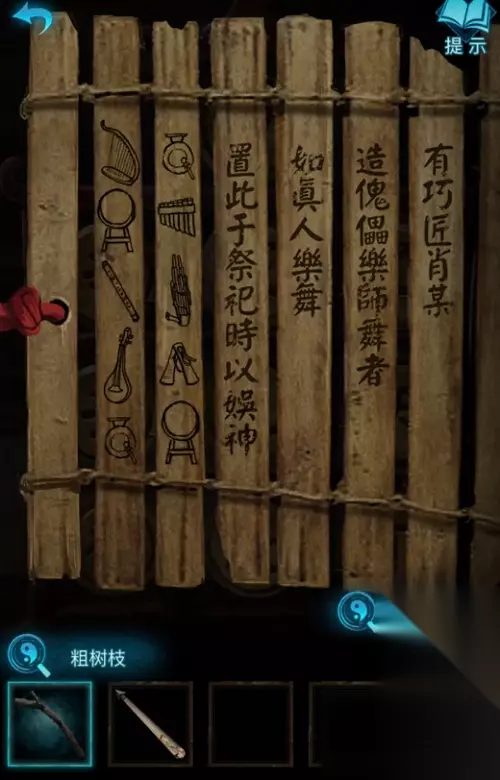 提示
有巧匠肖某
造傀儡樂師舞者
如真人樂舞
置此于祭祀時以娛神
粗树枝